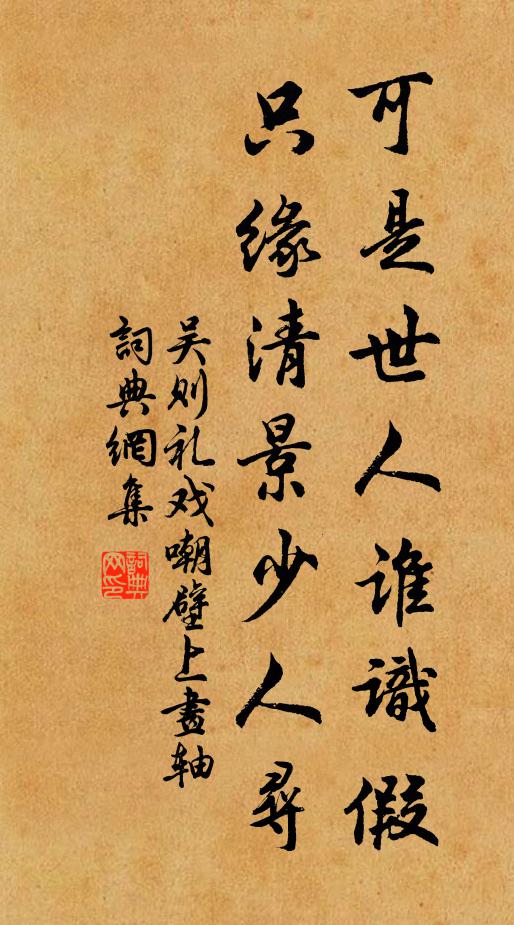 可是世人誰識假
只缘清景少人尋
吴则礼戏嘲壁上畫轴
詞典網集
詞典
网印